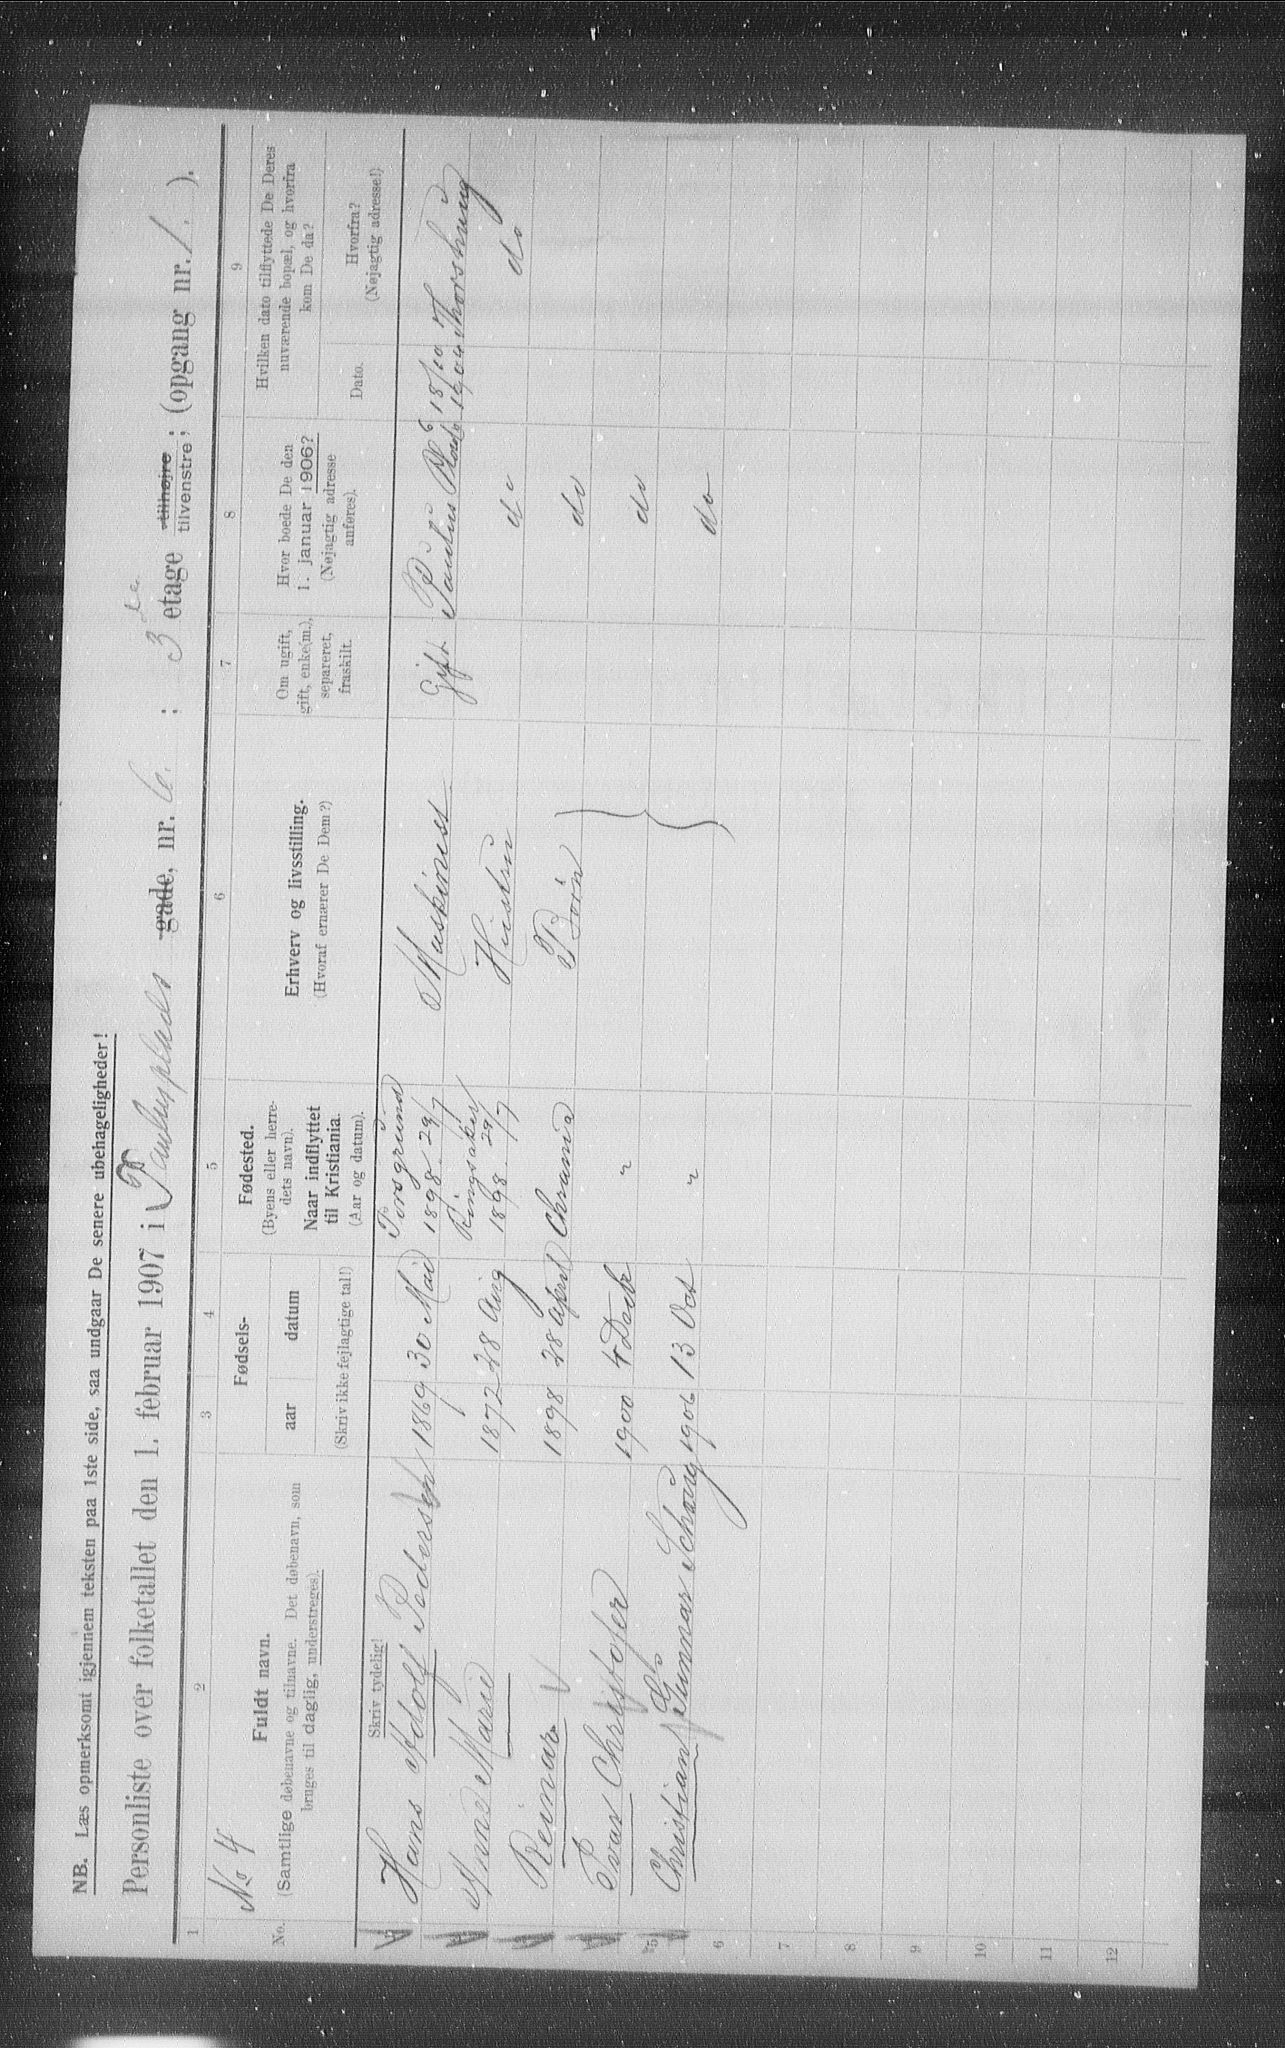 NB. Læs opmerksomt igjennem teksten paa 1ste side, saa undgaar De senere ubehageligheder!
Personliste over folketallet den 1. februar 1907 i Paulus plads gade, nr. 6. ; 3 de etage tilhøjre tilvenstre; (opgang nr. 1. ).
1 2 3 4 5 6 7 8 9
No 4
No.
Fuldt navn.
(Samtlige døbenavne og tilnavne. Det døbenavn, som
bruges til daglig, understreges).
Skriv tydelig!
Fødsels-
aar datum
(Skriv ikke fejlagtige tal!)
Fødested.
(Byens eller herre-
dets navn).
Naar indflyttet
til Kristiania.
(Aar og datum).
Erhverv og livsstilling.
(Hvoraf ernærer De Dem?)
Om ugift,
gift, enke(m.),
separeret,
fraskilt.
Hvor boede De den
1. januar 1906?
(Nøjagtig adresse
anføres).
Hvilken dato tilflyttede De Deres
nuværende bopæl, og hvorfra
kom De da?
Dato.
Hvorfra?
(Nøjagtig adresse!)
Hans Adolf Pedersen 1869 30 Mai Porsgrund 1898 29/7 Maskinist Gift Paulus Plads 6 18/10 1904 Thorshaug
Anna Marie 1872 28 Aug Ringsaker 1898 29/7 Hustru do do
Reinar 1898 28 April Chrania Børn do
Ivar Christofer 1900 4 Decbr " do
5 Christian Gunnar Schaug 1906 13 Oct " do
6
7
8
9
10
11
12